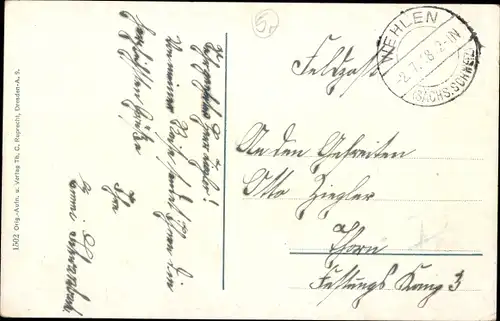 5.
WEHLEN
2.7.18. 2-3N
(SÄCHS. SCHWEIZ)
Feldpost
An den Gefreiten
Otto Ziegler
Thorn
Festungs König 3
Von meiner Reise sendet Ihnen die
herzlichsten Grüße
Ihre
1502 Orig.-Aufn. u. Verlag Th. C. Ruprecht, Dresden-A. 9.